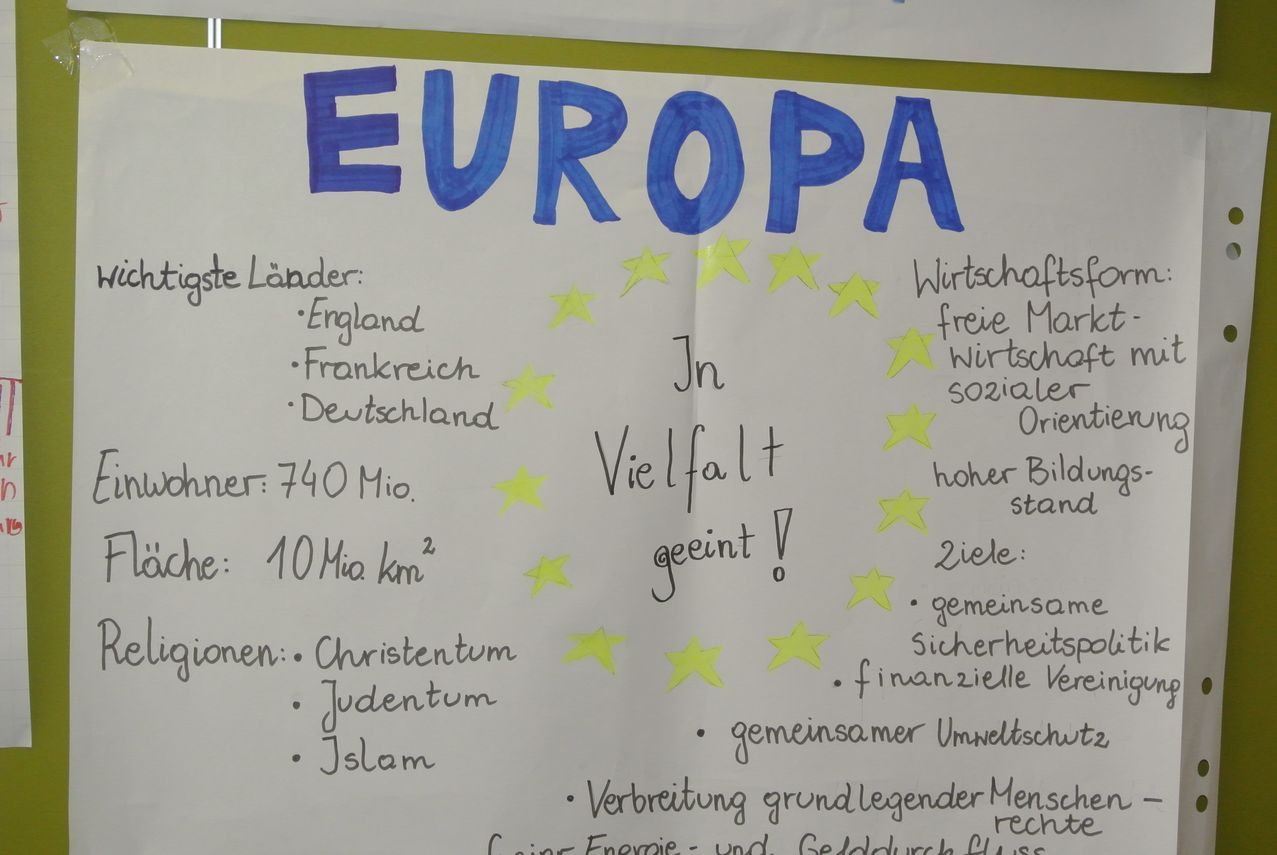 EUROPA
wichtigste Länder:
• England
• Frankreich
• Deutschland
Einwohner: 740 Mio.
Fläche: 10 Mio. km²
Religionen: • Christentum
• Judentum
• Islam
In
Vielfalt
geeint!
Wirtschaftsform:
freie Markt-
wirtschaft mit
sozialer
Orientierung
hoher Bildungs-
stand
Ziele:
• gemeinsame
Sicherheitspolitik
• finanzielle Vereinigung
• gemeinsamer Umweltschutz
• Verbreitung grundlegender Menschen-
rechte
Energie- und Gelddurchfluss